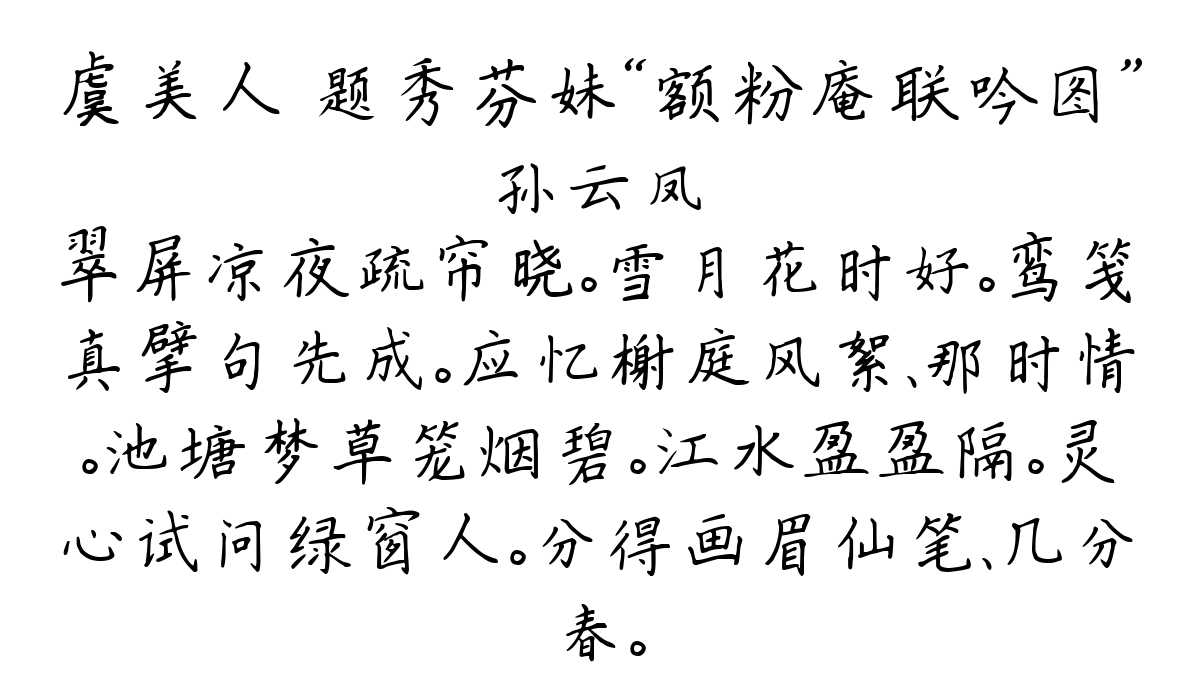 虞美人 题秀芬妹“额粉庵联吟图”
孙云凤
翠屏凉夜疏帘晓。雪月花时好。鸾笺
真擘句先成。应忆榭庭风絮、那时情
。池塘梦草笼烟碧。江水盈盈隔。灵
心试问绿窗人。分得画眉仙笔、几分
春。